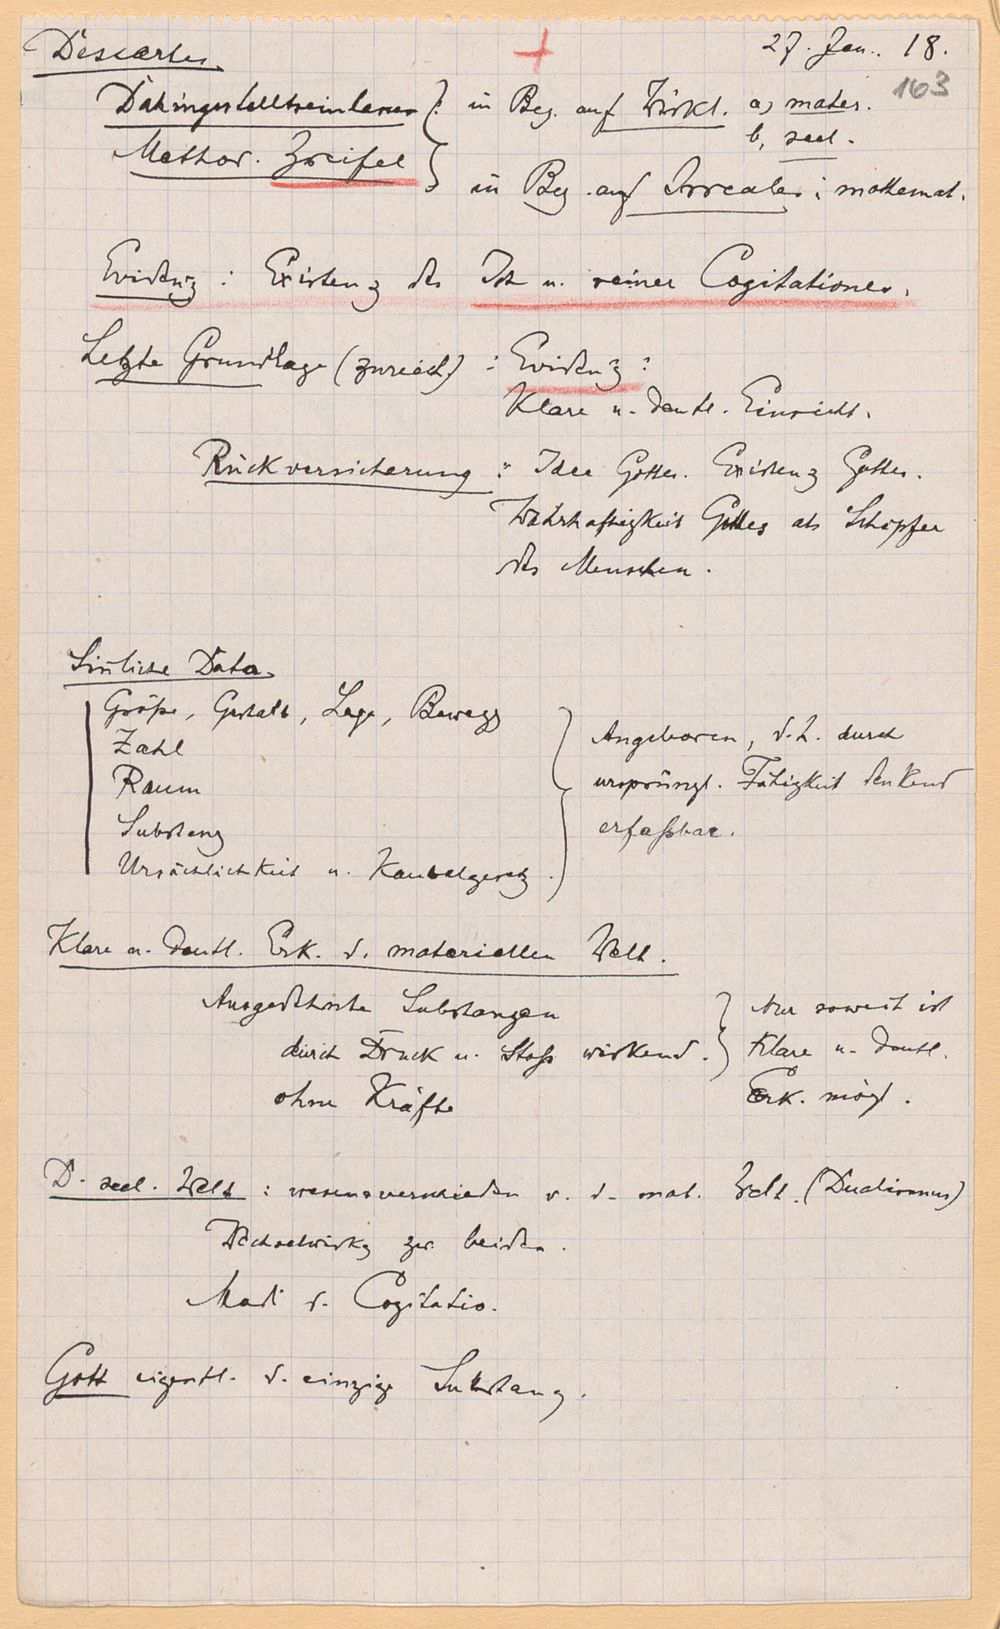 Descartes.
27. Jan. 18.
163
Dahingestelltseinlassen : in Bez. auf Wirkl. a, mater.
b, seel.
Method. Zweifel
in Bez. auf Irreales : mathemat.
Evidenz : Existenz des Ich u. seiner Cogitationes.
Letzte Grundlage (zureich) : Evidenz :
Klare u. deutl. Einsicht.
Rückversicherung : Idee Gottes. Existenz Gottes.
Wahrhaftigkeit Gottes als Schöpfer
des Menschen.
Sinliche Data.
Größe, Gestalt, Lage, Bewegg
Zahl
Raum
Substanz
Ursächlichkeit u. Kausalgesetz.
Angeboren, d.h. durch
ursprüngl. Fähigkeit denkend
erfaßbar.
Klare u. deutl. Erk. d. materiellen Welt.
Ausgedehnte Substanzen
durch Druck u. Stoß wirkend.
ohne Kräfte
Nur soweit ist
klare u. deutl.
Erk. mögl.
D. seel. Welt : wesensverschieden v. d. mat. Welt. (Dualismus)
Wechselwirkg zw. beiden.
Modi d. Cogitatio.
Gott eigentl. d. einzige Substanz.